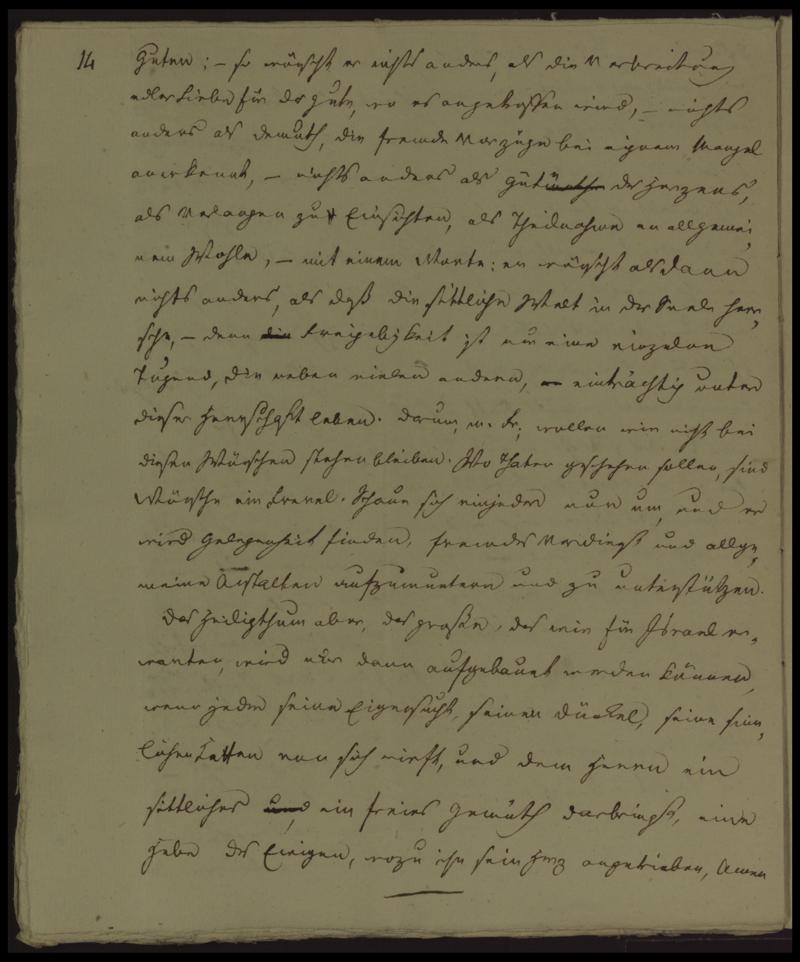 14
Guten; – so wünscht er nichts anders, als die Verbreitung
edler Liebe für das gute, wo es angetroffen wird, – nichts
anders als Demuth, die fremde Vorzüge bei eignem Mangel
anerkennt, – nichts anders als Güte des Herzens,
als Verlangen zu Einsichten, als Theilnahme an allgemei,
nem Wohle, – mit einem Worte: er wünscht alsdann
nichts anders, als daß die sittliche Welt in der Seele herr,
sche, – denn die Freigebigkeit ist nur eine einzelne
Tugend, die neben vielen andern, einträchtig unter
dieser Herrschaft leben. Darum, m. Fr., wollen wir nicht bei
diesen Wünschen stehen bleiben. Wo Thaten geschehen sollen, sind
Wünsche ein Frevel. Schaue sich einjeder nur um, und er
wird Gelegenheit finden, fremdes Verdienst und allge,
meine Anstalten aufzumuntern und zu unterstützen.
Das Heiligthum aber, das große, das wir für Israel er,
warten, wird nur dann aufgebauet werden können,
wenn jeder seine Eigensucht, seinen Dünkel, seine sinn,
lichen Ketten von sich wirft, und dem Herrn ein
sittliches und ein freies Gemüth darbringt, eine
Hebe des Ewigen, wozu ihn sein Herz angetrieben, Amen